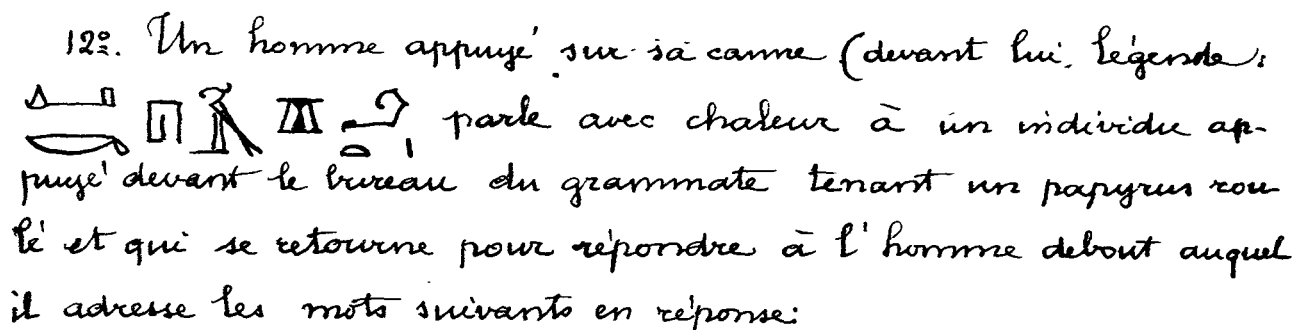 12º. Un homme appuyé sur sa canne (devant lui, légende:
parle avec chaleur à un individu ap-
puyé devant le bureau du grammate tenant un papyrus rou-
lé et qui se retourne pour répondre à l'homme debout auquel
il adresse les mots suivants en réponse: